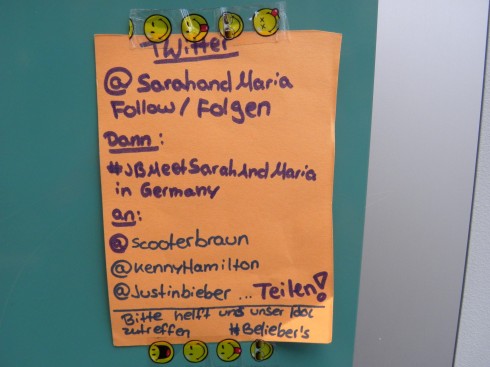 Twitter
@SarahandMaria
Follow / Folgen
Dann:
#JBMeetSarahAndMaria
in Germany
an:
@scooterbraun
@KennyHamilton
@Justinbieber ... Teilen!
Bitte helft uns unser Idol
zutreffen #Belieber's